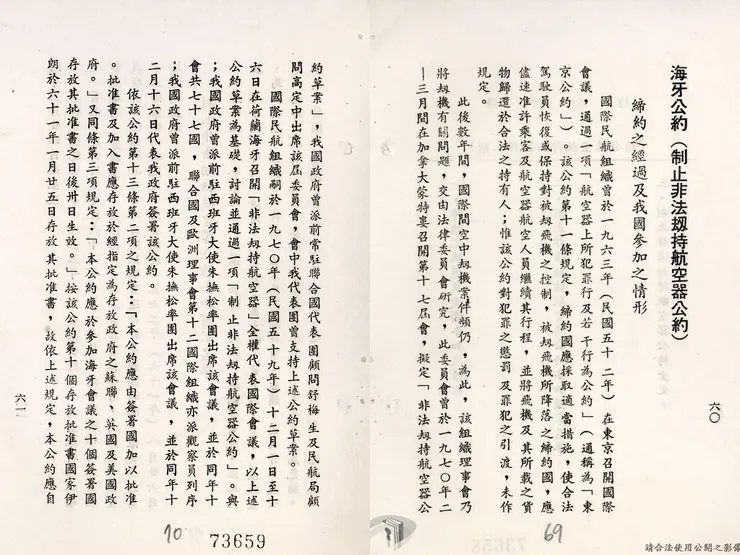 海牙公約（制止非法刼持航空器公約）
締約之經過及我國參加之情形
國際民航組織曾於一九六三年（民國五十二年）在東京召開國際
會議，通過一項「航空器上所犯罪行及若干行為公約」（通稱為「東
京公約」）。該公約第十一條規定，締約國應採取適當措施，使合法
駕駛員恢復或保持對被刼飛機之控制，被刼飛機所降落之締約國，應
儘速准許乘客及航空器航空人員繼續其行程，並將飛機及其所載之貨
物歸還於合法之持有人；惟該公約對犯罪之懲罰及罪犯之引渡，未作
規定。
此後數年間，國際間空中刼機案件頻仍，為此，該組織理事會乃
將刼機有關問題，交由法律委員會研究，此委員會曾於一九七〇年二
—三月間在加拿大蒙特婁召開第十七屆會，擬定「非法刼持航空器公
六〇
69
約草案」，我國政府曾派前常駐聯合國代表團顧問舒梅生及民航局顧
問高定中出席該屆委員會，會中我代表團曾支持上述公約草案。
國際民航組織嗣於一九七〇年（民國五十九年）十二月一日至十
六日在荷蘭海牙召開「非法刼持航空器」全權代表國際會議，以上述
公約草案為基礎，討論並通過一項「制止非法刼持航空器公約」。與
會共七十七國，聯合國及歐洲理事會等十二國際組織亦派觀察員列席
；我國政府曾派前駐西班牙大使朱撫松率團出席該會議，並於同年十
二月十六日代表我政府簽署該公約。
依該公約第十三條第二項之規定：「本公約應由簽署國加以批准
。批准書及加入書應存放於經指定為存放政府之蘇聯、英國及美國政
府。」又同條第三項規定：「本公約應於參加海牙會議之十個簽署國
存放其批准書之日後卅日生效。」按該公約第十個存放批准書國家伊
朗於六十一年一月廿五日存放其批准書，故依上述規定，本公約應自
六一
70
73659
73658
請合法使用公開之影像